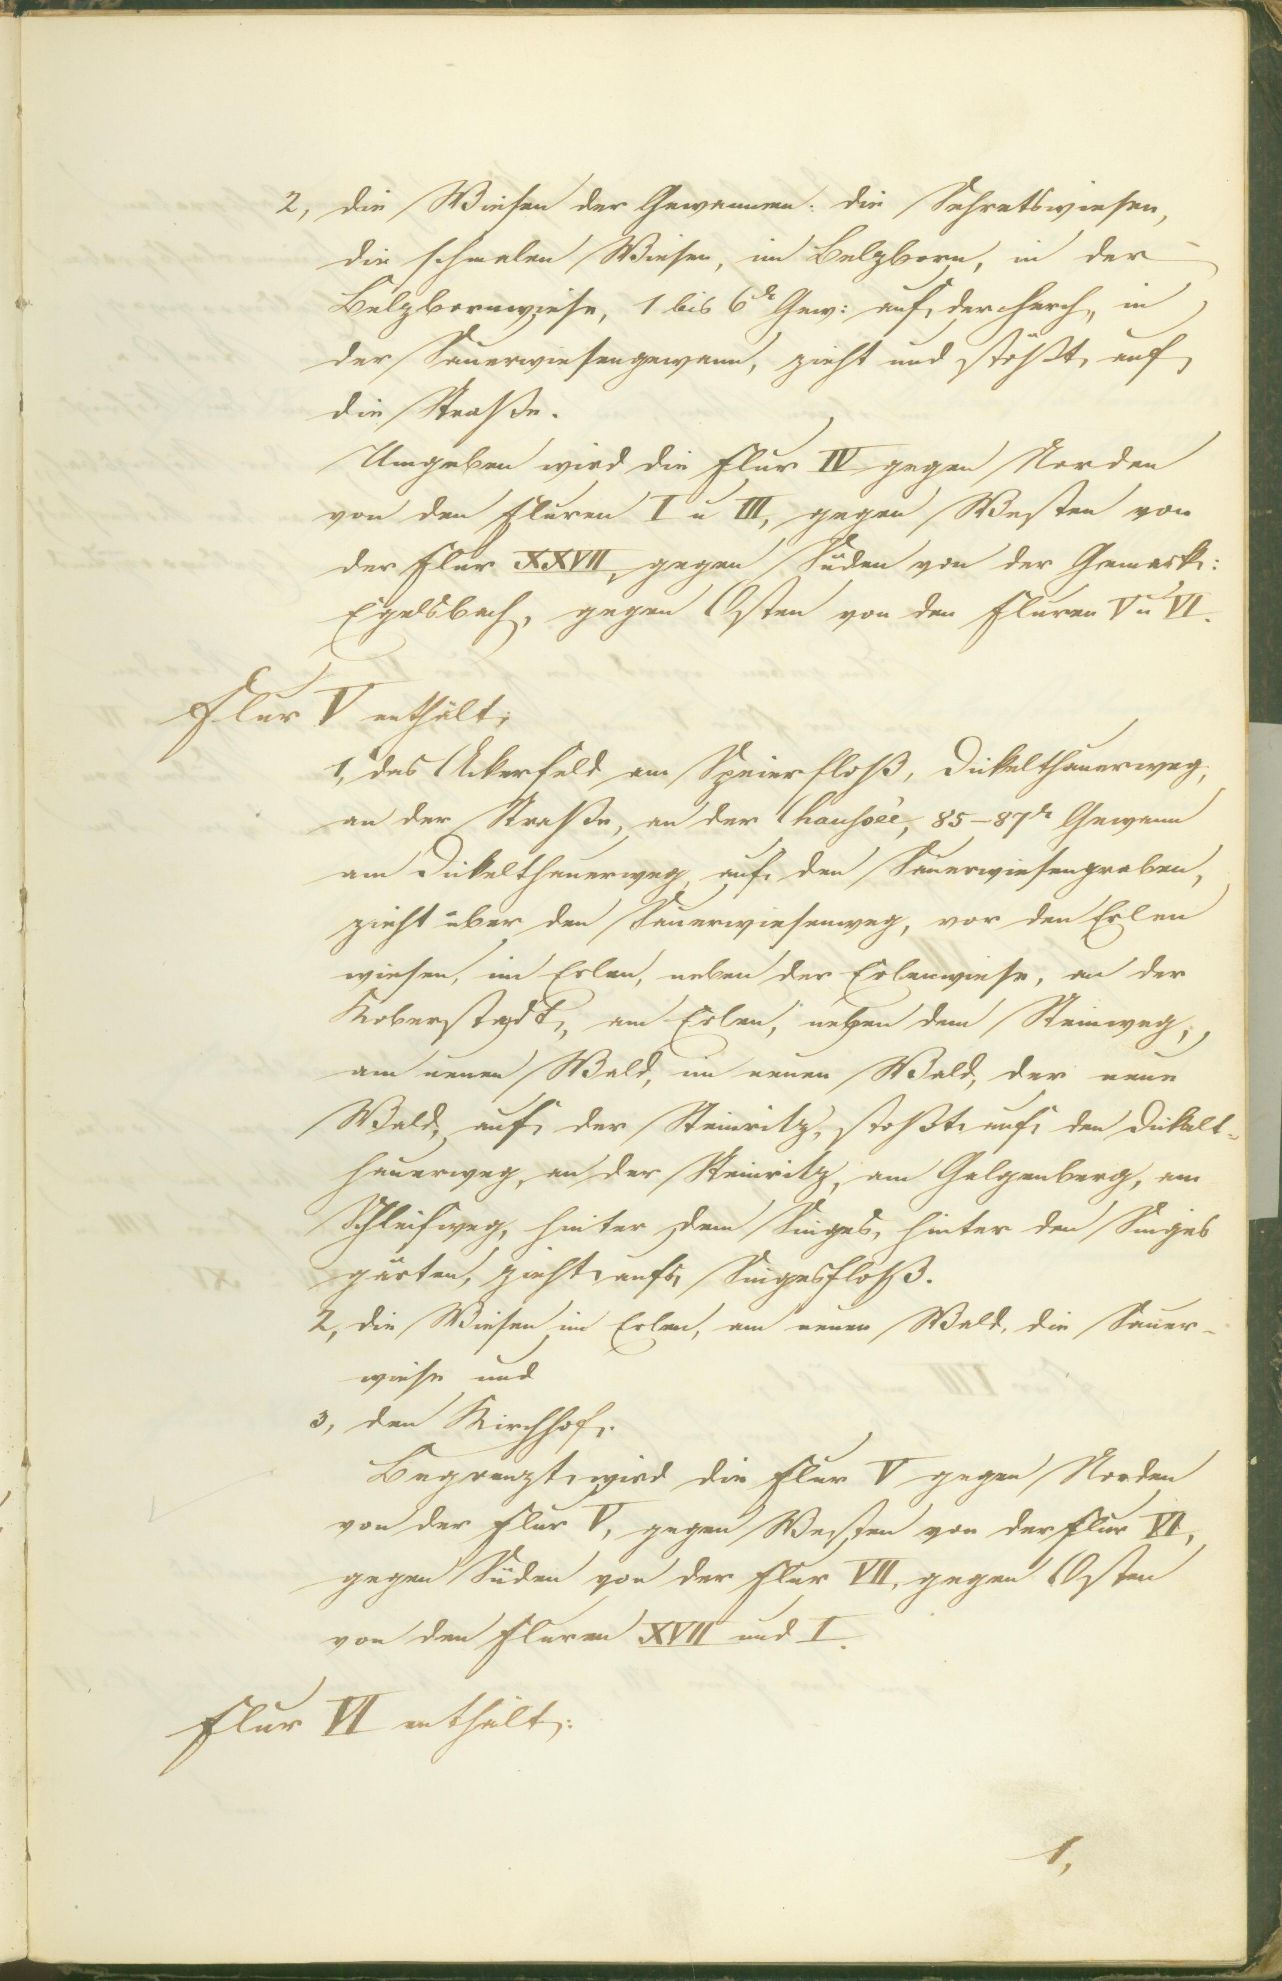 2, die Wiesen der Gewannen: die Sehretswiesen,
die schmalen Wiesen, im Belzborn, in der
Belzbornwiese, 1 bis 6te Gew: auf der Lerch, in
der Sauerwiesengewann, zieht und stößt auf
die Straße.
Umgeben wird die Flur IV gegen Norden
von den Fluren I u III, gegen Westen von
der Flur XXVII, gegen Süden von der Gemark:
Egelsbach, gegen Osten von den Fluren V u VI.
Flur V enthält;
1, das Ackerfeld am Speierfloß, Dickelthauerweg,
an der Straße, an der Chaussée, 85–87te Gewann
am Dickelthauerweg, auf den Sauerwiesengraben,
zieht über den Sauerwiesenweg, vor den Erlen
wiesen, im Erlen, neben der Erlenwiese, an der
Koberstadt, am Erlen, neben dem Steinweg,
am neuen Wald, im neuen Wald, der neue
Wald, auf der Steinritz, stoßt auf den Dickelt-
hauerweg, an der Steinritz, am Galgenberg, am
Schleifweg, hinter dem Singes, hinter den Singes
gärten, zieht aufs Singesfloß.
2, die Wiesen im Erlen, am neuen Wald, die Sauer-
wiese und
3, den Kirchhof.
Begrenzt wird die Flur V gegen Norden
von der Flur V, gegen Westen von der Flur VI,
gegen Süden von der Flur VII, gegen Osten
von den Fluren XVII und I.
Flur VI enthält:
1,